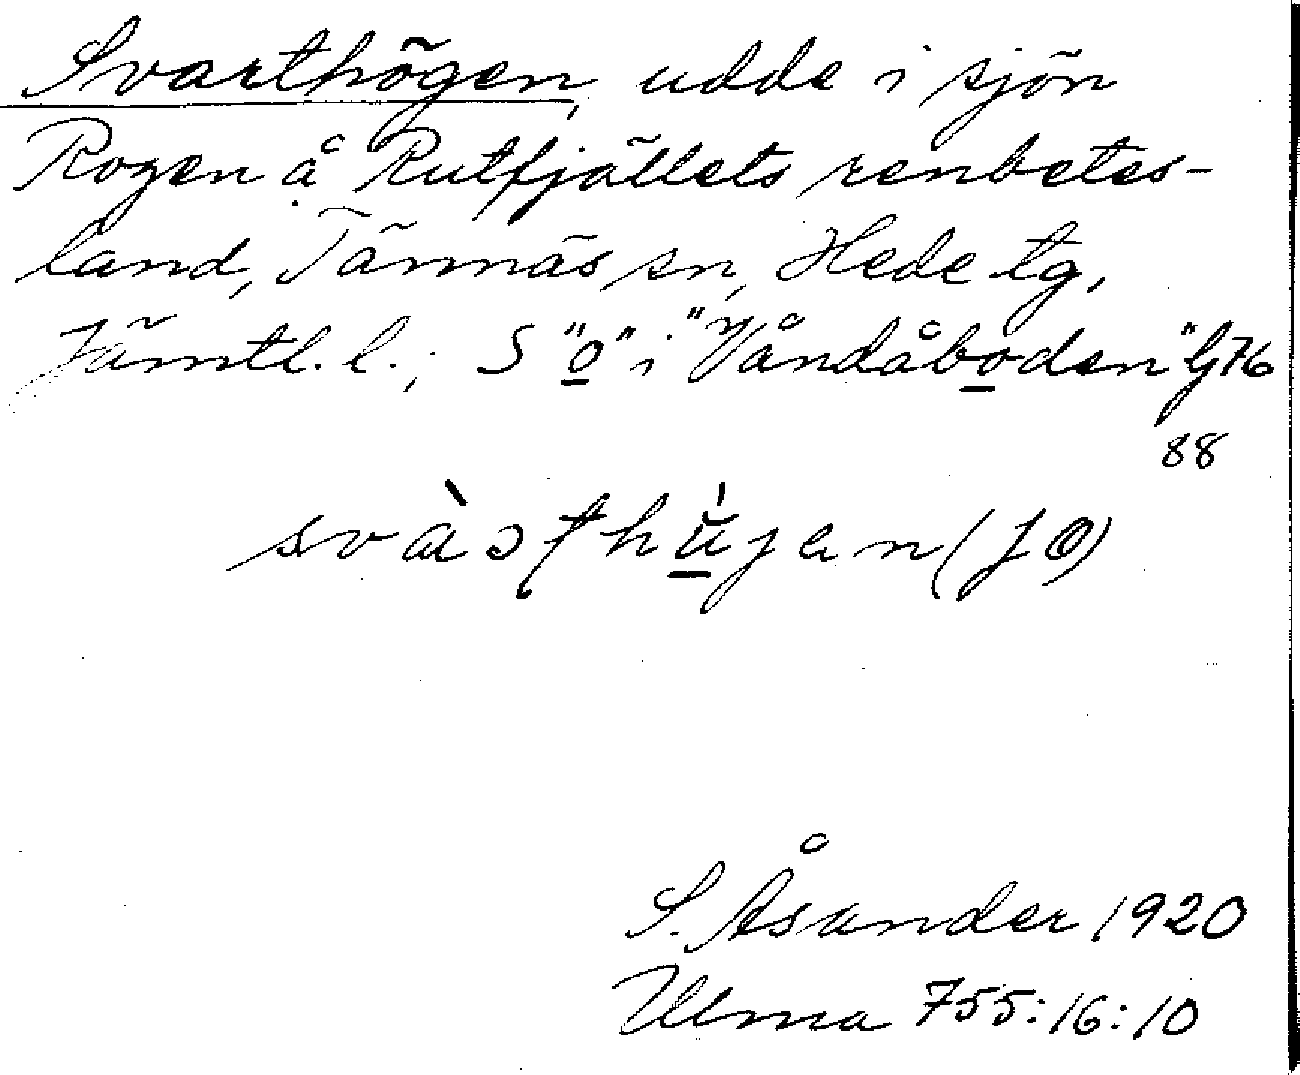 Svarthögen, udde i sjön
Rogen å Rutfjällets renbetes-
land, Tännäs sn, Hede tg,
Jämtl. l.; S "o" i "Våndåboden" G76
88
(JO)
S. Åsander 1920
Ulma 755:16:10